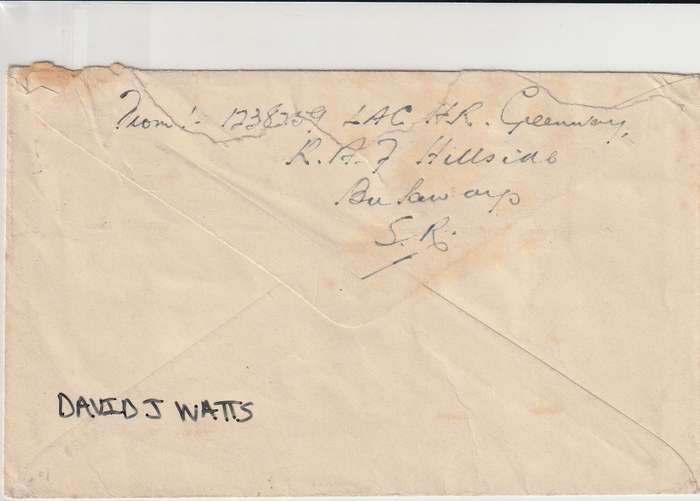 From :- 1238259 LAC H.R. Greenway
R.A.F Hillside
Bulawayo
S.R.
DAVID J WATTS